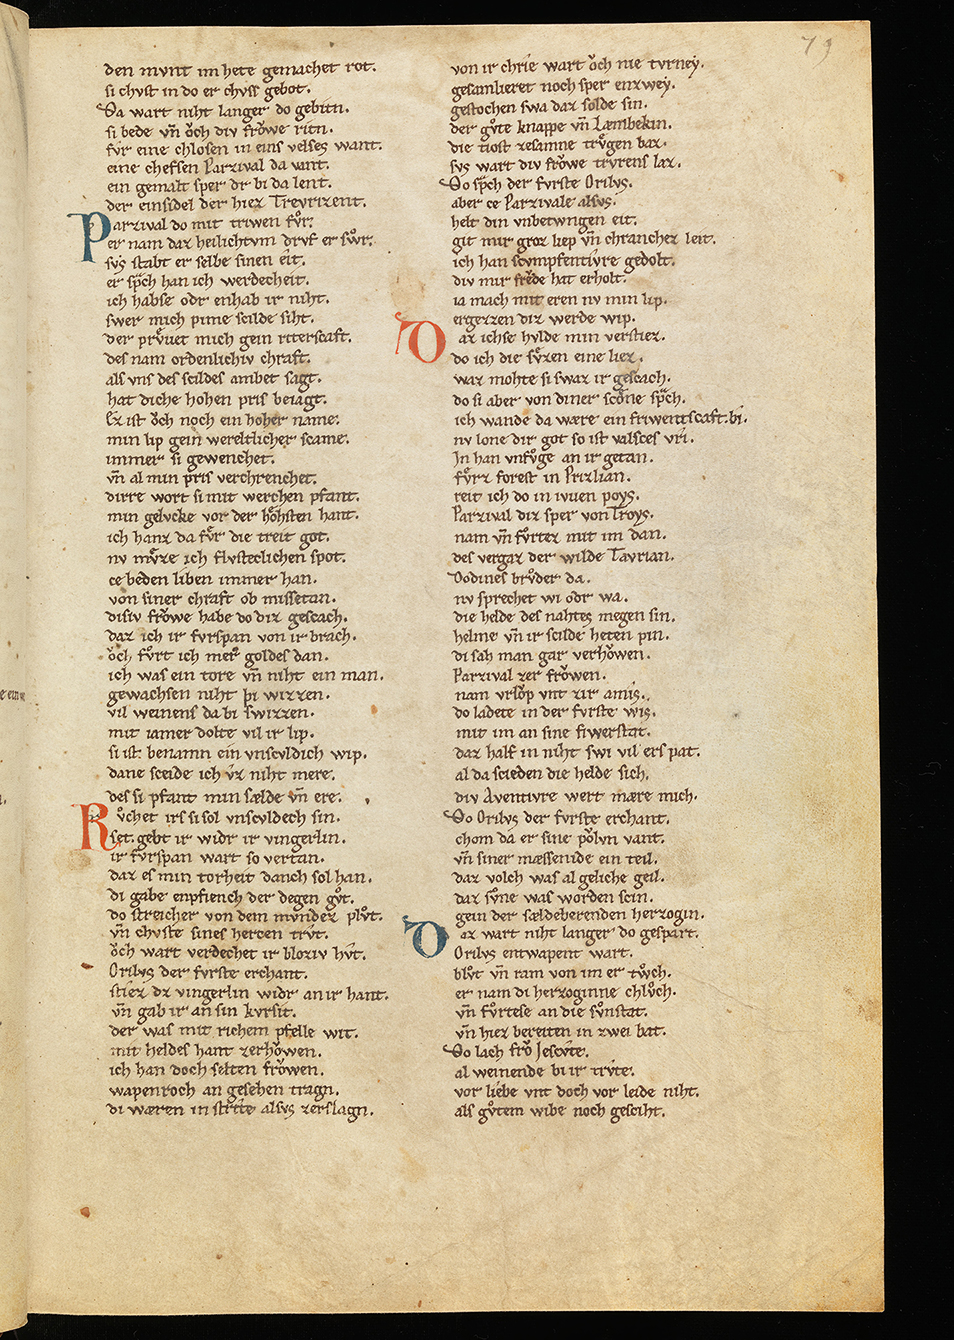 79
den mvnt im hete gemachet rot.
si chvst in do er chvss gebot.
Da wart niht langer do gebitn.
si bede vn̄ o̍ch div fro̍we ritn.
fvr eine chlosen in eins velses want.
eine chefsen Parzival da vant.
ein gemalt sper dr bi da lent.
der einsidel der hiez Trevrizent.
Parzival do mit triwen fvͦr.
er nam daz heilichtvm drvf er swͦr.
svs stabt er selbe sinen eit.
er sp̄ch han ich werdecheit.
ich habse odr enhab ir niht.
swer mich pime scilde siht.
der prvͤuet mich gein riterscaft.
des nam ordenlichiv chraft.
als vns des scildes ambet sagt.
hat diche hohen pris beiagt.
Ez ist oͮch noch ein hoher name.
min lip gein wereltlicher scame.
immer si gewenchet.
vn̄ al min pris verchrenchet.
dirre wort si mit werchen pfant.
min gelvcke vor der hoͤhsten hant.
ich hanz da fvͤr die treit got.
nv mvͤze ich flvsteclichen spot.
ce beden liben immer han.
von siner chraft ob missetan.
disiv froͮwe habe do diz gescach.
daz ich ir fvrspan von ir brach.
oͮch fvͦrt ich mer goldes dan.
ich was ein tore vn̄ niht ein man.
gewachsen niht bi wizzen.
vil weinens da bi swizzen.
mit iamer dolte vil ir lip.
si ist benamn ein vnscvldich wip.
dane sceide ich vz niht mere.
des si pfant min sælde vn̄ ere.
Rvͦchet irs si sol vnscvldech sin.
set. gebt ir widr ir vingerlin.
ir fvrspan wart so vertan.
daz es min torheit danch sol han.
di gabe enpfiench der degen gvͦt.
do streicher von dem mvnde z plvͦt.
vn̄ chvste sines hercen trvt.
oͮch wart verdechet ir bloziv hvt.
Orilvs der fvrste erchant.
stiez dz vingerlin widr an ir hant.
vn̄ gab ir an sin kvrsit.
der was mit richem pfelle wit.
mit heldes hant zerhoͮwen.
ich han doch selten froͮwen.
wapenroch an gesehen tragn.
di wæren in strite alsvs zerslagn.
von ir chrie wart oͮch nie tvrney.
gesamlieret noch sper enzwey.
gestochen swa daz solde sin.
der gvͦte knappe vn̄ Læmbekin.
die tiost zesamne trvͤgen baz.
svs wart div froͮwe trvrens laz.
Do sp̄ch der fvrste Orilvs.
aber ce Parzivale alsvs.
helt din vnbetwngen eit.
git mir groz liep vn̄ chranchez leit.
ich han scvmpfentivre gedolt.
div mir frͤde hat erholt.
ia mach mit eren nv min lip.
ergezzen diz werde wip.
Daz ichse hvlde min verstiez.
do ich die svͤzen eine liez.
waz mohte si swaz ir gescach.
do si aber von diner scoͤne sp̄ch.
ich wande da wære ein friwentscaft. bi.
nv lone dir got so ist valsces vri.
Jn han vnfvͦge an ir getan.
fvͤrz forest in Prizlian.
reit ich do in ivuen poys.
Parzival diz sper von Troys.
nam vn̄ fvͦrtez mit im dan.
des vergaz der wilde Tavrian.
Dodines brvͦder da.
nv sprechet wi odr wa.
die helde des nahtes megen sin.
helme vn̄ ir scilde heten pin.
di sah man gar verhoͮwen.
Parzival zer froͮwen.
nam vrloͮp vnt zir amis.
do ladete in der fvrste wis.
mit im an sine fiwerstat.
daz half in niht swi vil ers pat.
al da scieden die helde sich.
div Aventivre wert mære mich.
Do Orilvs der fvrste erchant.
chom da er sine poͮlvn vant.
vn̄ siner mæssenide ein teil.
daz volch was al geliche geil.
daz svͦne was worden scin.
gein der sældeberenden herzogin.
Daz wart niht langer do gespart.
Orilvs entwapent wart.
blvͦt vn̄ ram von im er twͦch.
er nam di herzoginne chlvͦch.
vn̄ fvͦrtese an die svͦnstat.
vn̄ hiez bereiten in zwei bat.
Do lach froͮ Jescvte.
al weinende bi ir trvte.
vor liebe vnt doch vor leide niht.
als gvͦtem wibe noch gesciht.